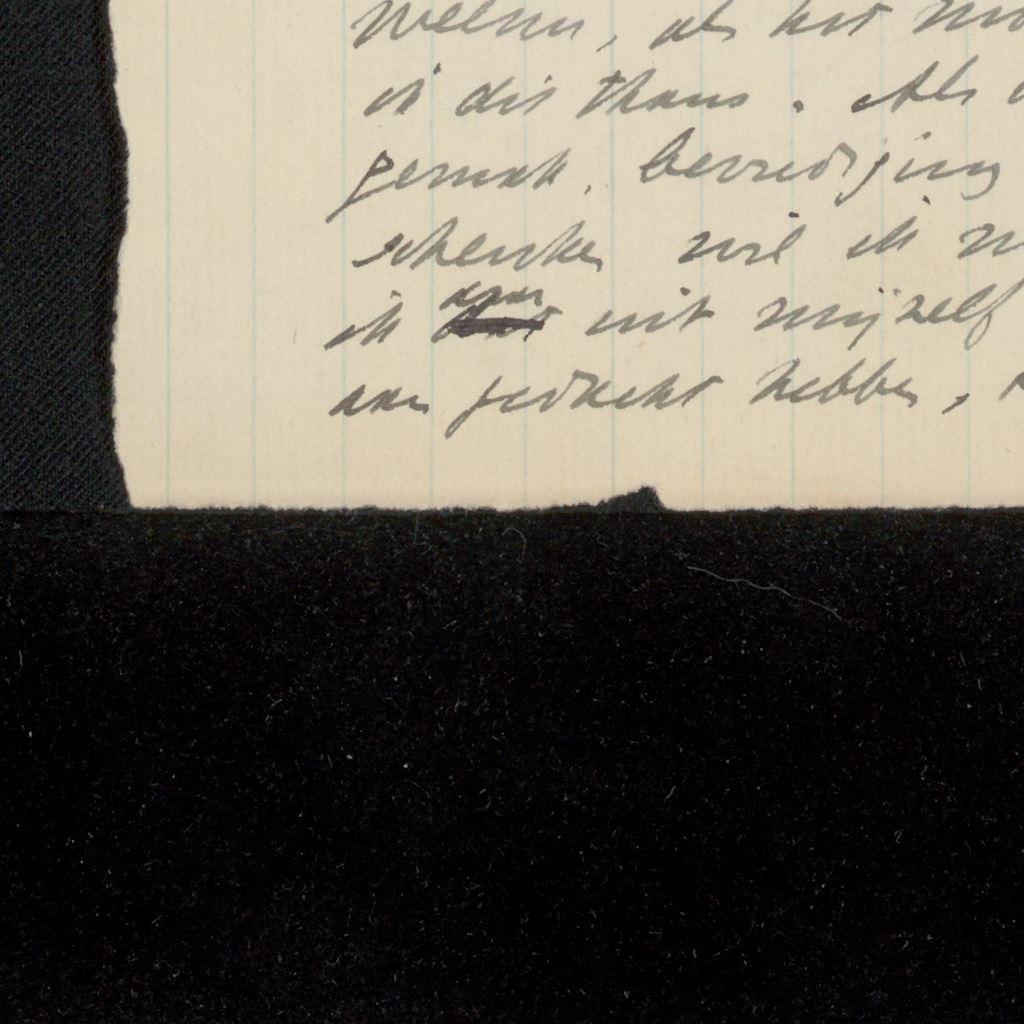 weenu, als het
is dit thans. Als
gemak, bevrediging
schenken wil ik
ik daar uit mijzelf
aan gedacht hebben,